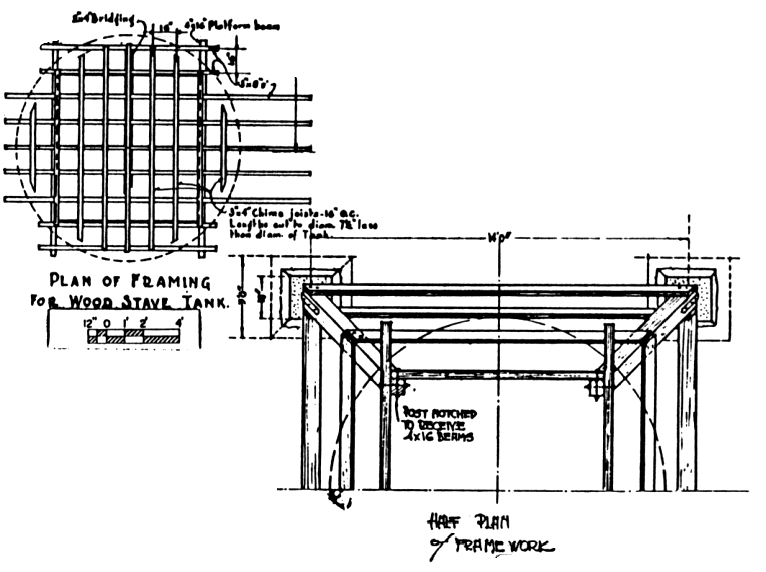 2"x4" Bridging
16"
4"x16" Platform beam
3"x4" Chime joists-16" O.C.
Lengths cut to diam. 7½" less
than diam. of Tank.
PLAN OF FRAMING
FOR WOOD STAVE TANK.
12" 0 1' 2' 4'
14'0"
POST NOTCHED
TO RECEIVE
4x16 BEAMS
HALF PLAN
of FRAMEWORK